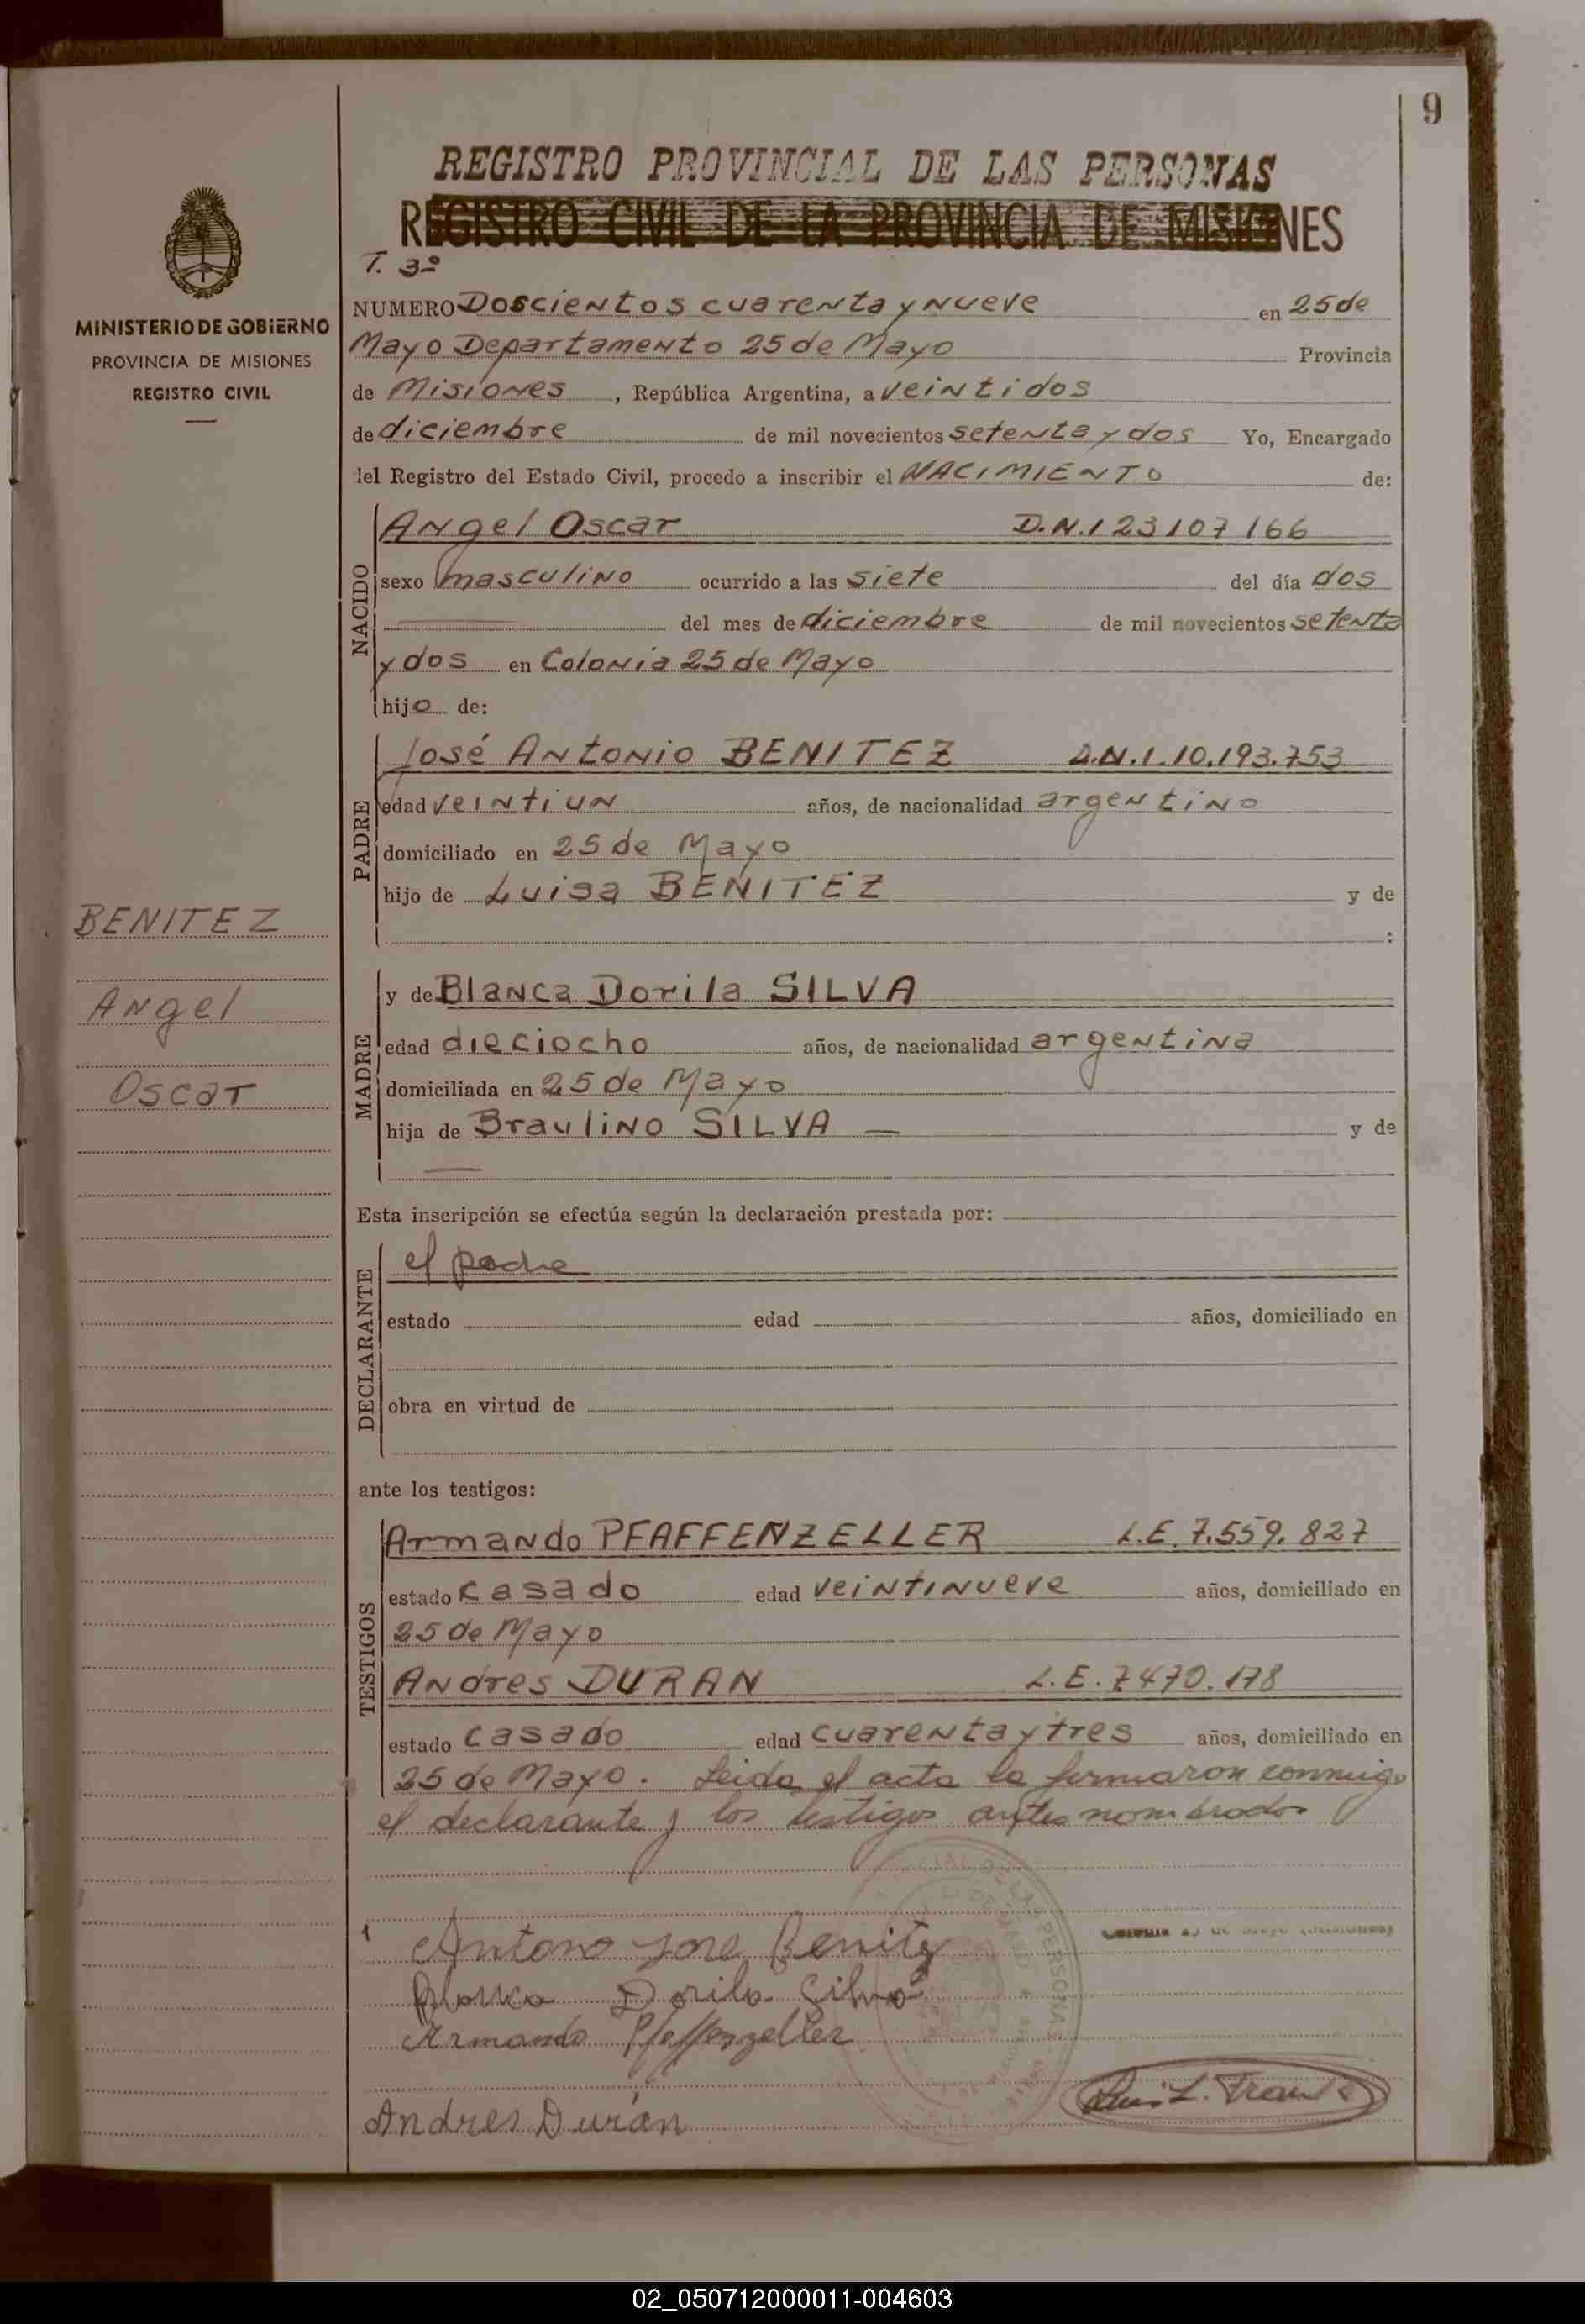 9
REGISTRO PROVINCIAL DE LAS PERSONAS
REGISTRO CIVIL DE LA PROVINCIA DE MISIONES
T. 3º
MINISTERIO DE GOBIERNO
PROVINCIA DE MISIONES
REGISTRO CIVIL
NUMERO Doscientos cuarenta y nueve en 25 de
Mayo Departamento 25 de Mayo Provincia
de Misiones, República Argentina, a veintidos
de diciembre de mil novecientos setenta y dos Yo, Encargado
del Registro del Estado Civil, procedo a inscribir el NACIMIENTO de:
NACIDO
Angel Oscar D.N.I 23107166
sexo masculino ocurrido a las siete del día dos
del mes de diciembre de mil novecientos setenta
y dos en Colonia 25 de Mayo
hijo de:
PADRE
José Antonio BENITEZ D.N.I. 10.193.753
edad veintiun años, de nacionalidad argentino
domiciliado en 25 de Mayo
hijo de Luisa BENITEZ y de
:
BENITEZ
Angel
Oscar
MADRE
y de Blanca Dorila SILVA
edad dieciocho años, de nacionalidad argentina
domiciliada en 25 de Mayo
hija de Braulino SILVA — y de
—
Esta inscripción se efectúa según la declaración prestada por:
DECLARANTE
el padre
estado edad años, domiciliado en
obra en virtud de
ante los testigos:
TESTIGOS
Armando PFAFFENZELLER L.E. 7.559.827
estado casado edad veintinueve años, domiciliado en
25 de Mayo
Andres DURAN L.E. 7470.178
estado casado edad cuarenta y tres años, domiciliado en
25 de Mayo. Leida el acta la firmaron conmigo
el declarante y los testigos antes nombrados
Antono Jose Benitez
Blanca Dorila Silva
Armando Pfaffenzeller
Andres Durán
02_050712000011-004603